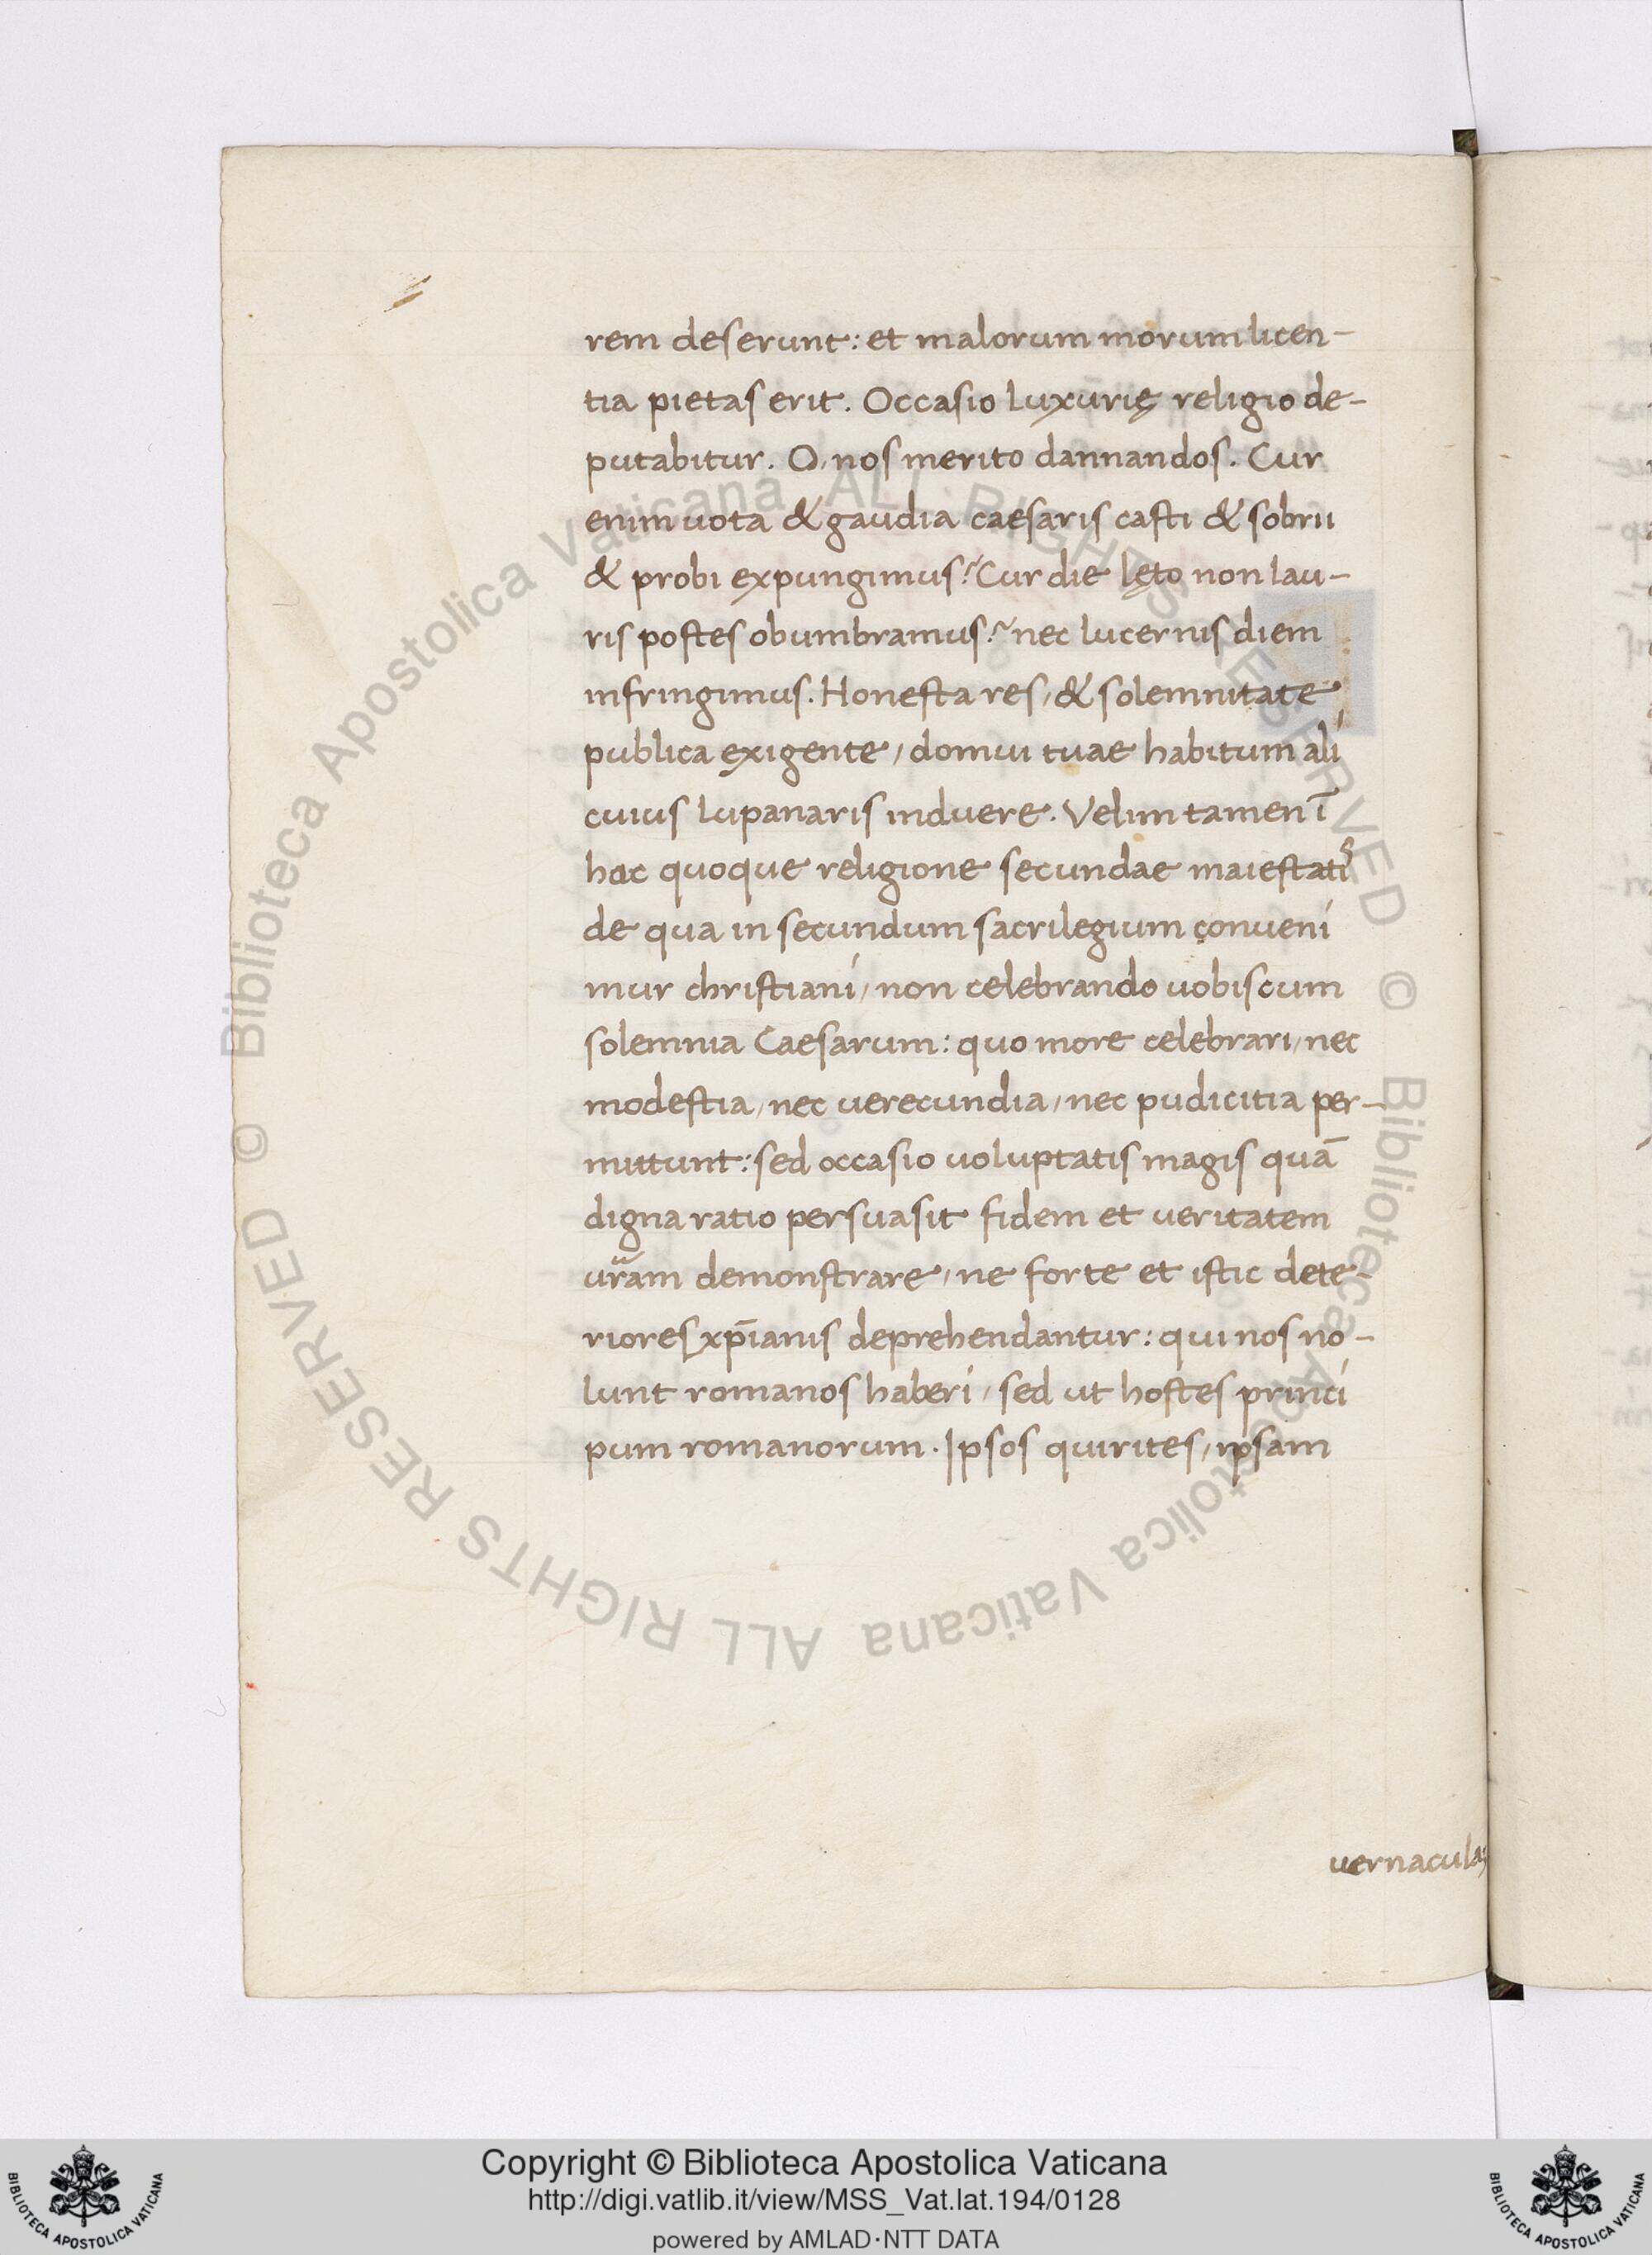 rem deserunt: et malorum morum licen-
tia pietas erit. Occasio luxurię religio de-
putabitur. O, nos merito dannandos. Cur
enim uota & gaudia caesaris casti & sobrii
& probi expungimus? Cur die lęto non lau-
ris postes obumbramus? nec lucernis diem
infringimus. Honesta res, & solemnitate
publica exigente, domui tuae habitum ali
cuius lupanaris induere. Velim tamen ī
hac quoque religione secundae maiestatis
de qua in secundum sacrilegium conueni
mur christiani, non celebrando uobiscum
solemnia Caesarum: quo more celebrari, nec
modestia, nec uerecundia, nec pudicitia per-
mittunt: sed occasio uoluptatis magis quā
digna ratio persuasit fidem et ueritatem
ur̃am demonstrare, ne forte et istic dete-
riores xp̄ianis deprehendantur: qui nos no-
lunt romanos haberi, sed ut hostes princi
pum romanorum. Ipsos quirites, ipsam
uernacula;
© Biblioteca Apostolica Vaticana ALL RIGHTS RESERVED
© Biblioteca Apostolica Vaticana ALL RIGHTS RESERVED
Copyright © Biblioteca Apostolica Vaticana
http://digi.vatlib.it/view/MSS_Vat.lat.194/0128
powered by AMLAD·NTT DATA
BIBLIOTECA APOSTOLICA VATICANA
BIBLIOTECA APOSTOLICA VATICANA